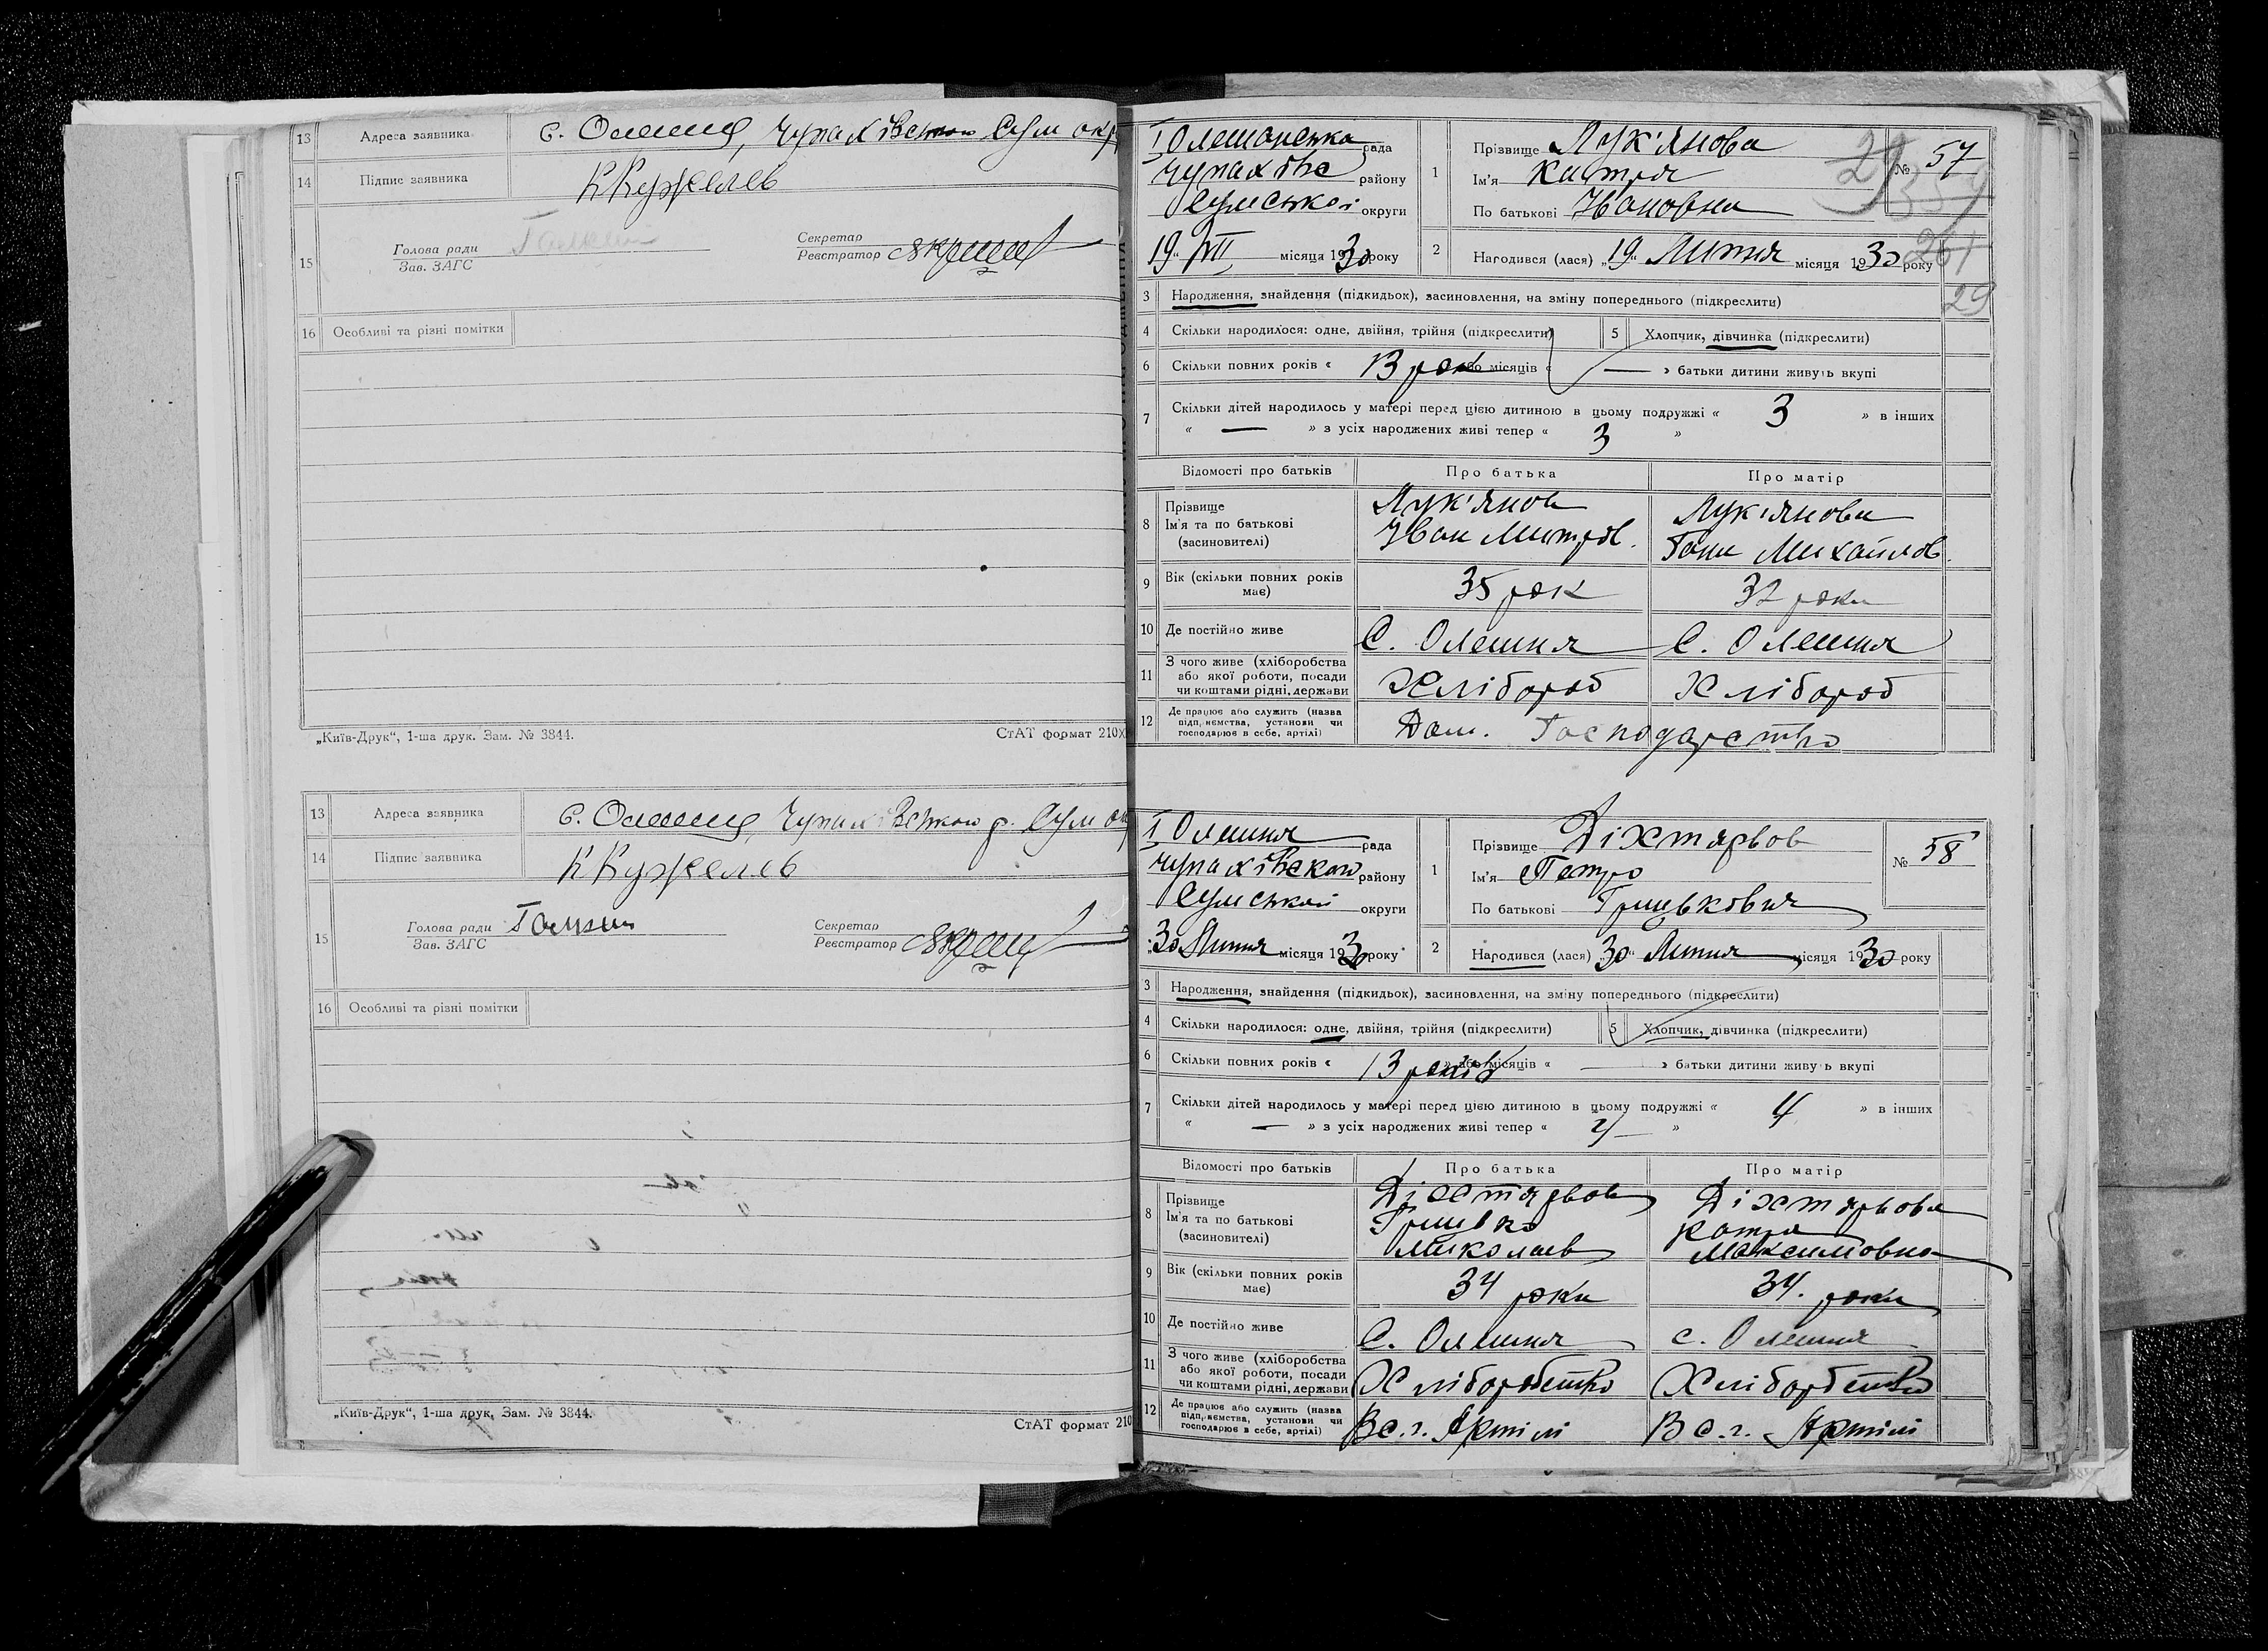 13 Адреса заявника с. Олешня, Чупахівського Сум окр
14 Підпис заявника ККужелев
15 Голова ради Зав. ЗАГС
Секретар Реєстратор
16 Особливі та різні помітки
„Київ-Друк“, 1-ша друк. Зам. № 3844.
СтАТ формат 210х
13 Адреса заявника с. Олешня, Чупахівського р. Сум ок
14 Підпис заявника ККужелев
15 Голова ради Зав. ЗАГС
Секретар Реєстратор
16 Особливі та різні помітки
„Київ-Друк“, 1-ша друк. Зам. № 3844.
СтАТ формат 210
І Олешанська рада
Чупахівс району
Сумської округи
„19“ VII місяця 1930 року
1 Прізвище Лук'янова
Ім'я Катря
По батькові Івановна
№ 57
29
261
29
2 Народився (лася) „19“ Липня місяця 1930 року
3 Народження, знайдення (підкидьок), засиновлення, на зміну попереднього (підкреслити)
4 Скільки народилося: одне, двійня, трійня (підкреслити)
5 Хлопчик, дівчинка (підкреслити)
6 Скільки повних років « 13 рок або місяців « — » батьки дитини живуть вкупі
7 Скільки дітей народилось у матері перед цією дитиною в цьому подружжі « 3 » в інших
« — » з усіх народжених живі тепер « 3 »
Відомості про батьків Про батька Про матір
8 Прізвище Ім'я та по батькові (засиновителі)
Лук'янов Іван Митров.
Лук'янова Ганна Михайлов.
9 Вік (скільки повних років має) 35 рок 32 роки
10 Де постійно живе С. Олешня С. Олешня
11 З чого живе (хліборобства або якої роботи, посади чи коштами рідні, держави Хлібороб Хлібороб
12 Де працює або служить (назва підприємства, установи чи господарює в себе, артілі) Дом. Господарство
І Олешня рада
Чупахівского району
Сумської округи
„30 Липня місяця 1930 року
1 Прізвище Діхтярьов
Ім'я Петро
По батькові Грицькович
№ 58
2 Народився (лася) „30“ Липня місяця 1930 року
3 Народження, знайдення (підкидьок), засиновлення, на зміну попереднього (підкреслити)
4 Скільки народилося: одне, двійня, трійня (підкреслити)
5 Хлопчик, дівчинка (підкреслити)
6 Скільки повних років « 13 років » або місяців « — » батьки дитини живуть вкупі
7 Скільки дітей народилось у матері перед цією дитиною в цьому подружжі « 4 » в інших
« — » з усіх народжених живі тепер « »
Відомості про батьків Про батька Про матір
8 Прізвище Ім'я та по батькові (засиновителі)
Діхтярьов Грицько Миколаєв
Діхтярьова Катря Максимовна
9 Вік (скільки повних років має) 34 роки 34. роки
10 Де постійно живе С. Олешня с. Олешня
11 З чого живе (хліборобства або якої роботи, посади чи коштами рідні, держави Хліборобство Хліборбство
12 Де працює або служить (назва підприємства, установи чи господарює в себе, артілі) В с. г. Артілі В с. г. Артілі